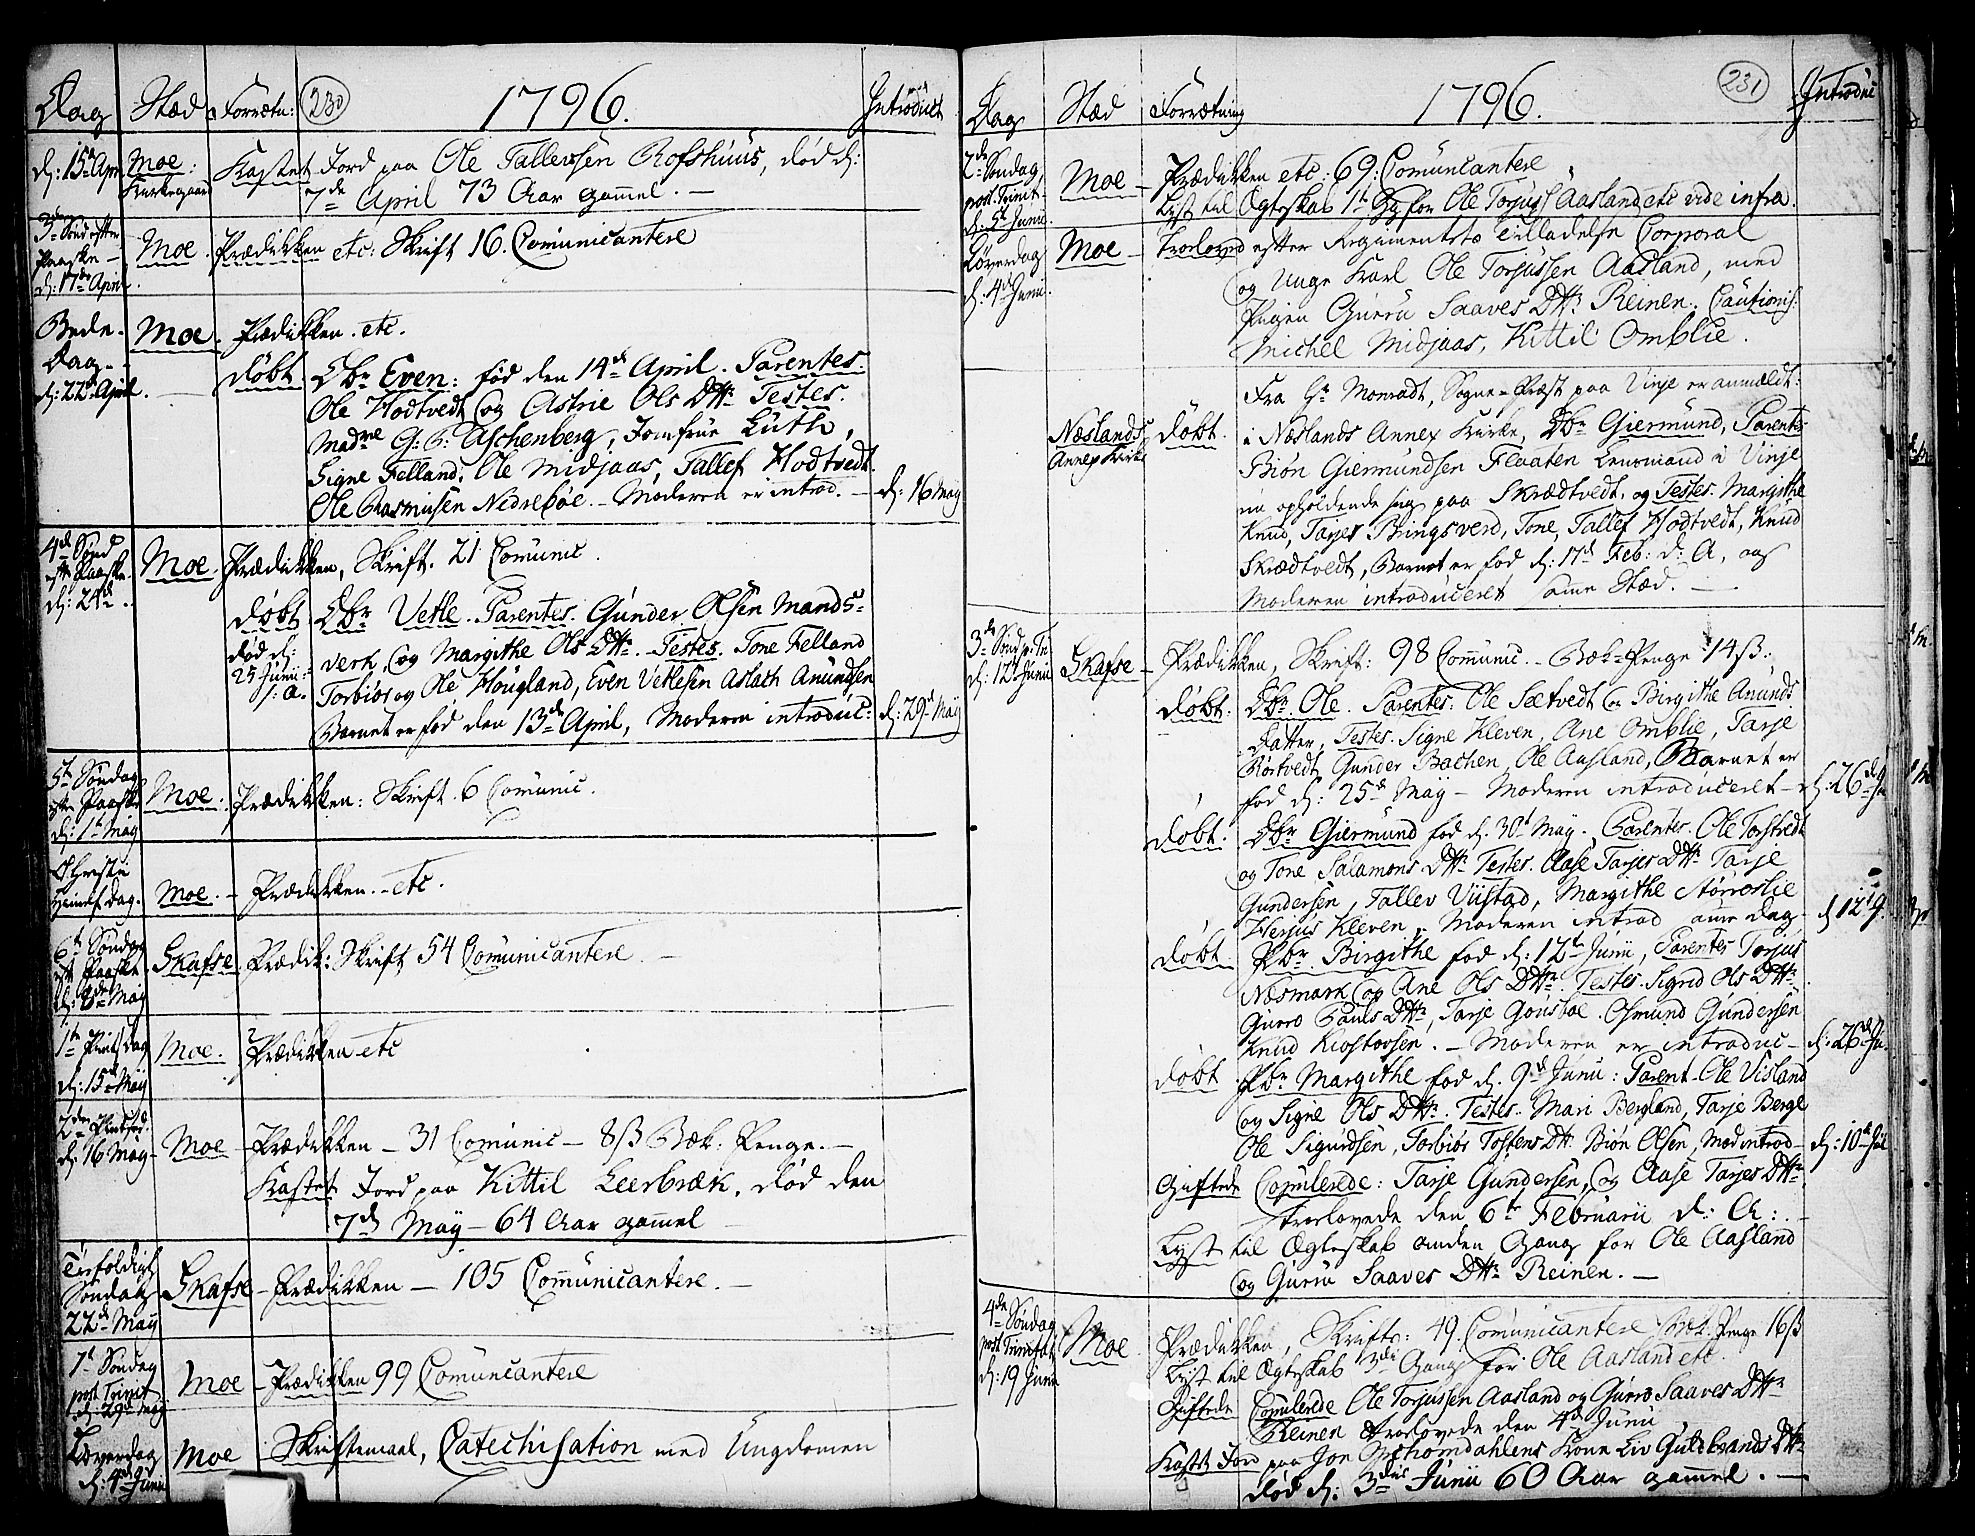 Dag Stæd Forrætn: 230 1796. Introduct
d: 15de Apr. Moe: Kirkegaard Kastet Jord paa Ole Tallevsen Rofshuus, død d:
7de April 73 Aar gammel. —
3de Sønd. efter Paaske — d: 17de April. Moe. Prædikken etc: Skrift 16. Comunicantere
Bede-Dag. d: 22de April. Moe. Prædikken. etc.
døbt Dbr Even: fød den 14de April. Parentes.
Ole Hodtvedt og Astrie Ols Dttr Testes.
Madme G: B: Aschenberg, Jomfrue Lüth,
Signe Felland, Ole Midjaas, Tallef Hodtvedt.
Ole Rasmusen Nedrebøe. — Moderen er introd. — d: 16 May
4de Sønd. eftr Paaske. d: 24de. Moe. Prædikken, Skrift. 21 Comunic.
døbt Dbr Vetle. Parentes. Gunder Olsen Mands-
død d: verk og Margithe Ols Dttr. Testes. Tone Felland
25 Junii: s: a. Torbiør og Ole Hougland, Even Vetlesen Aslath Anundsen
Barnet er fød den 13de April, Moderen introduc: d: 29de May
5te Søndag efter Paaske d: 1te May Moe. Prædikken: Skrift. 6 Comunic.
Christi Himmelf. dag. Moe. — Prædikken. — etc.
6te Søndag eft Paaske d: 8de May Skafse. Prædik: Skrift 54 Comunicantere. —
1te Pints dag d: 15de May Moe. Prædikken etc
2den Pintsed. d: 16 May — Moe — Prædikken — 31 Comunic — 8ß Bæk: Penge. —
Kastet Jord paa Kittil Leerbræk. død den
7de May — 64 Aar gammel —
Trefoldigh Søndag 22de May Skafse — Prædikken — 105 Communicantere. —
1te Søndag post Trinit d: 29de May Moe — Prædikken 99 Comunicantere
Løverdag d: 4de Junii Moe — Skriftemaal, Catechisation med Ungdomen
Dag Stæd Forrætning 1796. 231 Introduc
2de Søndag, post Trinit d: 5te Junii. Moe — Prædikken etc: 69: Comunicantere
Lyst til Ægteskab 1te Gg for Ole Torjuss Aasland etc vide infra.
Løverdag d: 4de Junii. Moe — Troloved efter Regimentets Tilladelse Corporal
og Unge Karl Ole Torjussen Aasland, med
Pigen Gurru Saaves Dttr Reinen. Cautionis:
Michel Midjaas, Kittil Omblie.
Fra Hr Monradt, Sogne-Præst paa Vinje er anmeldt:
Næslands Annex Kirke døbt. i Næslands Annex Kirke, Dbr Giermund, Parentes
Biøn Giermundsen Flaaten Lensmand i Vinje
nu opholdende sig paa Skrædtvedt, og Testes. Margithe
Knud, Tarjer Bringsverd, Tone, Tallef Hodtvedt, Knud
Skrædtvedt, Barnet er fød d: 17de Feb: d: A, og
Moderen introduceret same Stæd. —
3de Sønd. p: Tr: d: 12te Junii Skafse — Prædikken, Skrift: 98 Communic. — Bæk-Penge 14ß.
døbt: Dbr. Ole. Parentes. Ole Sætvedt og Birgithe Anunds
datter, Testes. Signe Kleven, Ane Omblie, Tarje
Rørtvedt, Gunder Bachen, Ole Aasland, Barnet er
fød d: 25de May — Moderen introduceret — d: 26de Ju
døbt: Dbr Giermund fød d. 30te May. Parentes. Ole Torstvedt
og Tone Salamons Dttr Testes. Aase Tarjes Dttr Tarje
Gundersen, Tallev Viistad, Margithe Størreslie
Herjus Kleven. — Moderen introd same dag — d 12te J.
døbt. Pbr. Birgithe fød d: 12te Junii, Parentes Torjus
Næsmark og Ane Ols Dttr. Testes. Sigrid Ols Dttr
Gurro Pauls Dttr, Tarje Gousboe. Osmund Gundersen
Knud Kiostovsen. — Moderen er introduc — d: 26de Ju.
døbt Pbr. Margithe fød d. 9de Junii: Parent. Ole Visland
og Signe Ols Dttr. Testes. Mari Bergland, Tarje Bergl
Ole Sigurdsen, Torbiør Tostens Dtr. Biøn Olsen, Mod introd — d: 10de Jul
Giftede Copulerede: Tarje Gundersen, og Aase Tarjes Dttr
trolovede den 6te Februarii d: A: —
Lyst til Ægteskab anden Gang for Ole Aasland
og Gurru Saaves Dttr Reinen. —
4de Søndag post Trinitat. d: 19 Junii Moe. Prædikken, Skrifte: 49. Comunicantere Bæk. Penge 16ß
Lyst til Ægteskab 3die Gang for Ole Aasland etc
Giftede Copulerede Ole Torjussen Aasland og Gurro Saaves Dttr
Reinen trolovede den 4de Junii
Kast Jord paa Jon Schomdahlens Kone Liv Guldbrands Dttr
død d: 3die Junii 60 Aar gammel. —